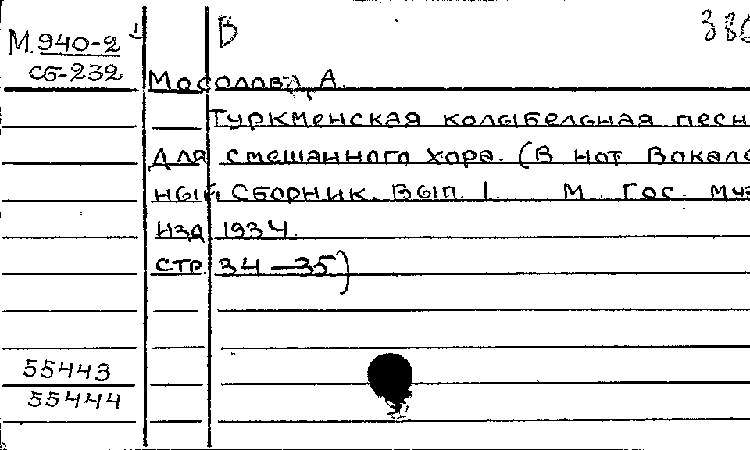 М.940-2
Сб-232
В
Мосолов, А.
Туркменская колыбельная песн
для смешанного хора. (В нот Вокаль
ный Сборник. Вып. 1 М. Гос. муз
изд 1934.
стр 34-35)
55443
55444